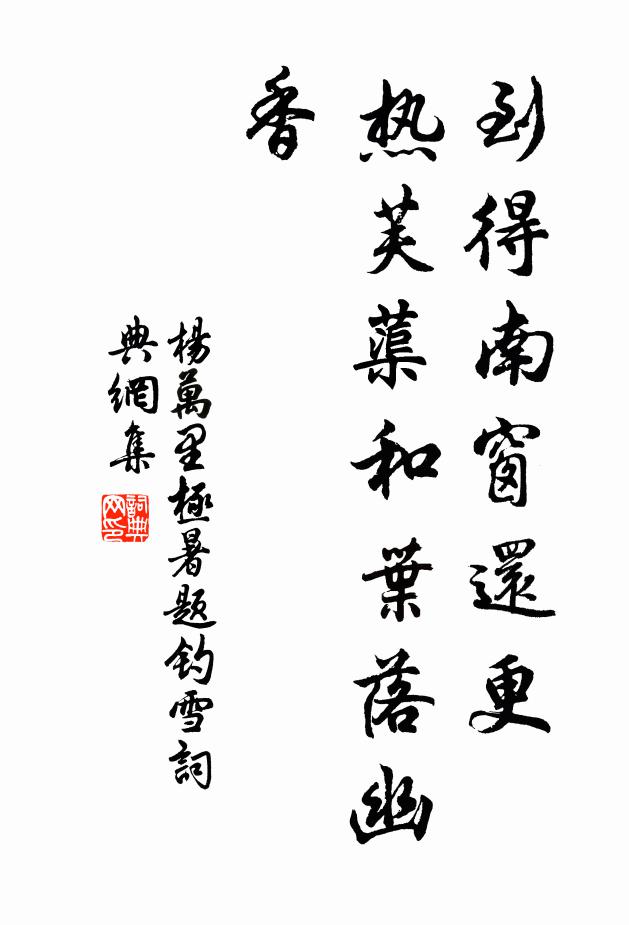 到得南窗還更
热芙蕖和葉落幽
香
楊萬里極暑题钓雪詞
典網集
詞典
网印